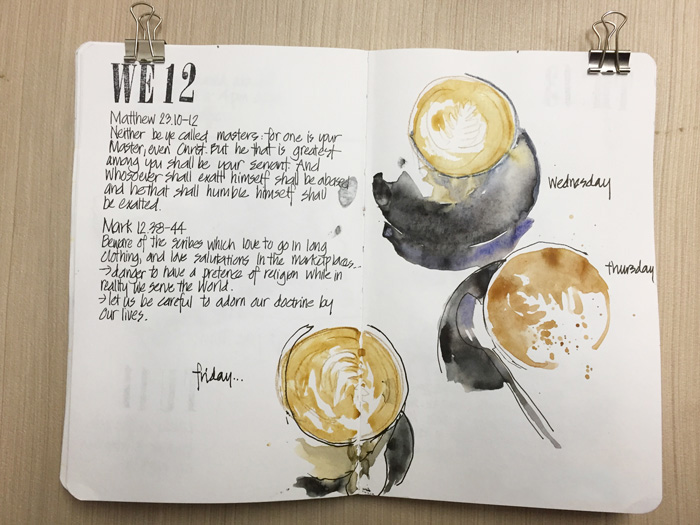 WE 12
Matthew 23.10-12
Neither be ye called masters: for one is your
Master, even Christ. But he that is greatest
among you shall be your servant. And
whosoever shall exalt himself shall be abased
and he that shall humble himself shall
be exalted.
Mark 12.38-44
Beware of the scribes which love to go in long
clothing, and love salutations in the marketplaces...
→ danger to have a pretence of religion while in
reality we serve the world.
→ let us be careful to adorn our doctrine by
our lives.
friday...
wednesday
thursday